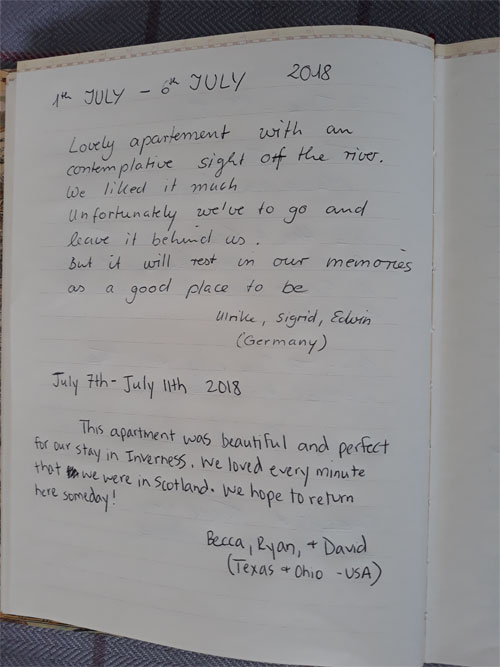 1th JULY - 6th JULY 2018
Lovely apartement with an
contemplative sight off the river.
We liked it much
Unfortunately we've to go and
leave it behind us.
But it will rest in our memories
as a good place to be
Ulrike, Sigrid, Edwin
(Germany)
July 7th - July 11th 2018
This apartment was beautiful and perfect
for our stay in Inverness. We loved every minute
that we were in Scotland. We hope to return
here someday!
Becca, Ryan, + David
(Texas + Ohio - USA)